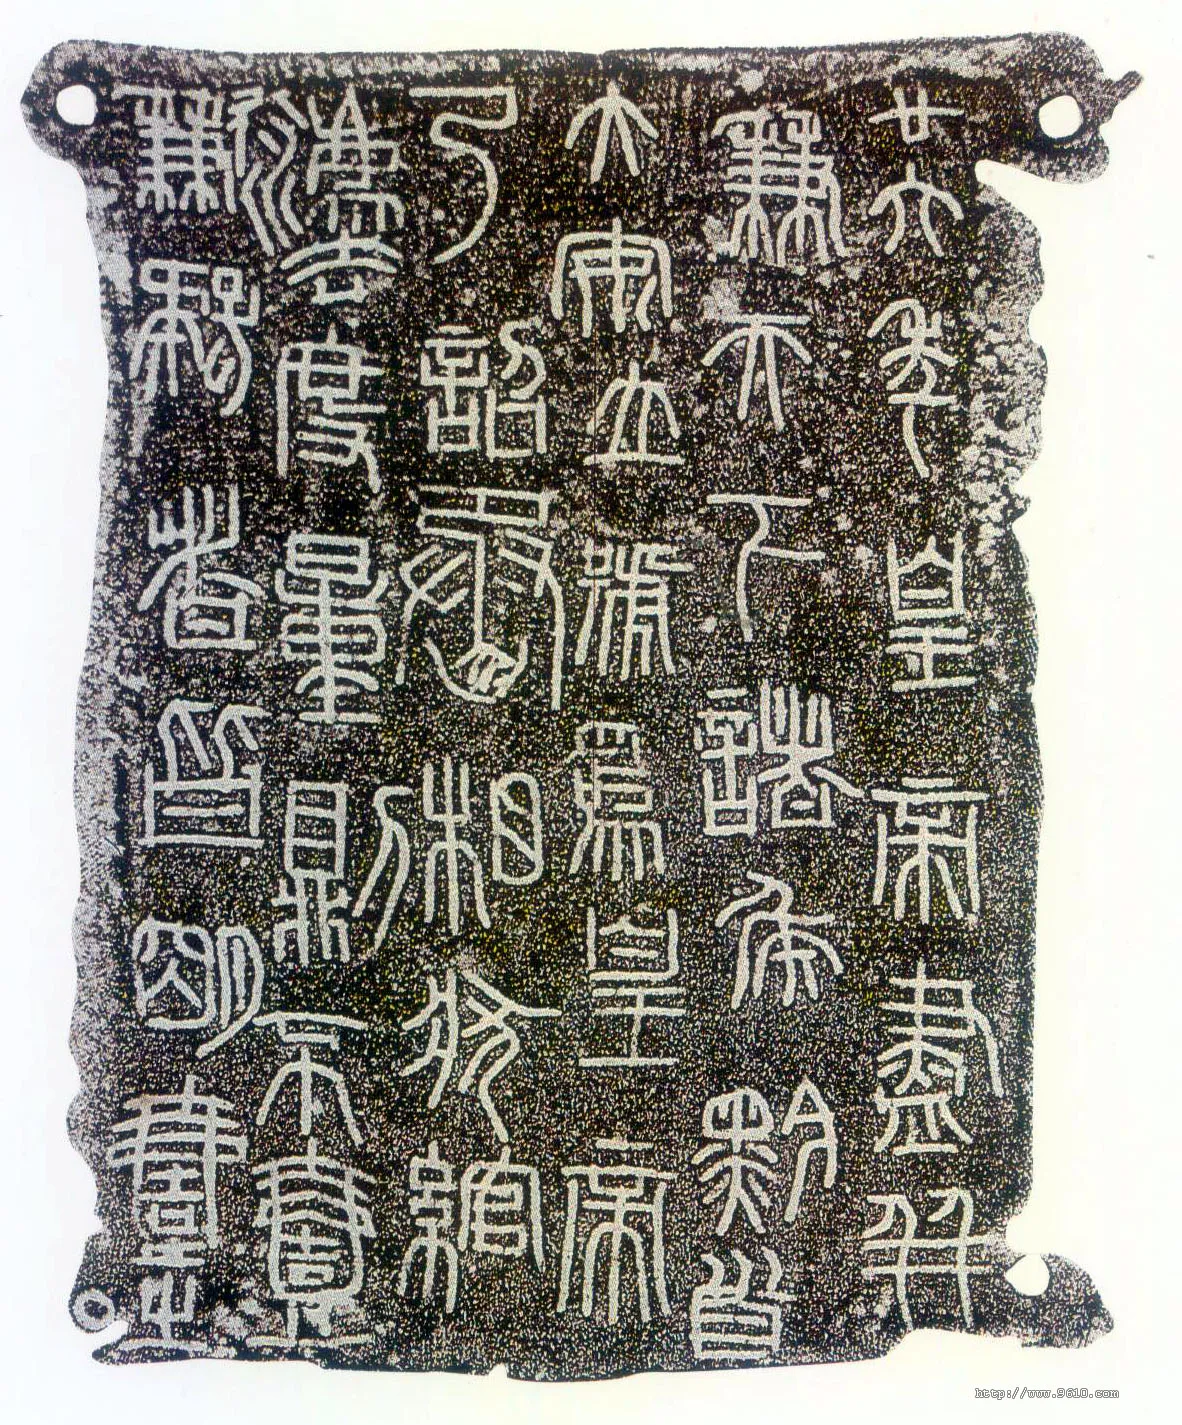 廿六年皇帝盡并
兼天下諸侯黔首
大安立號爲皇帝
乃詔丞相狀綰
灋度量則不壹
歉疑者皆明壹之
http://www.9610.com